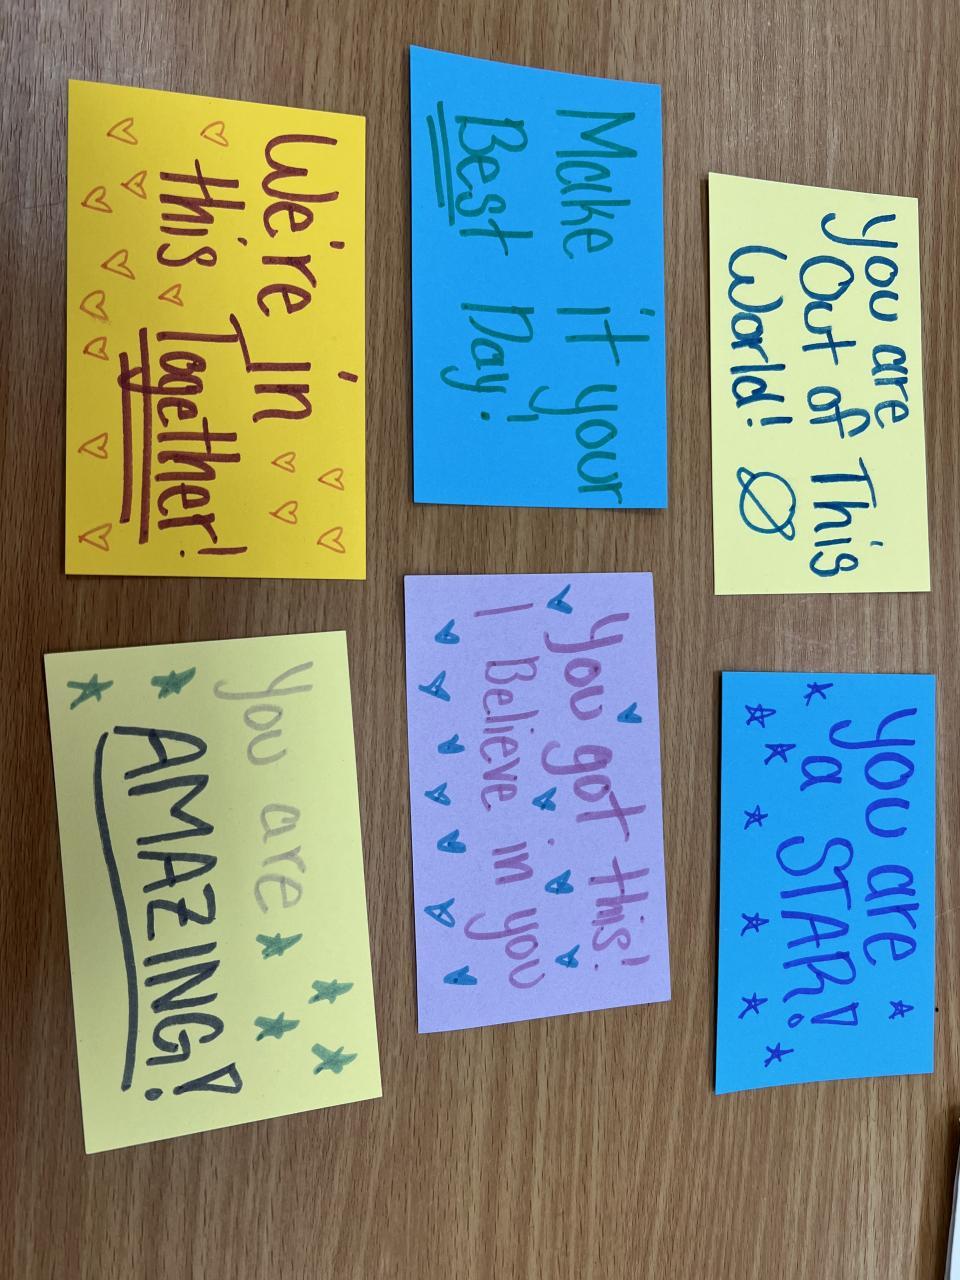 you are
Out of This
World!
you are
a STAR!
Make it your
Best Day!
You got this!
I Believe in you
We're In
this Together!
you are
AMAZING!